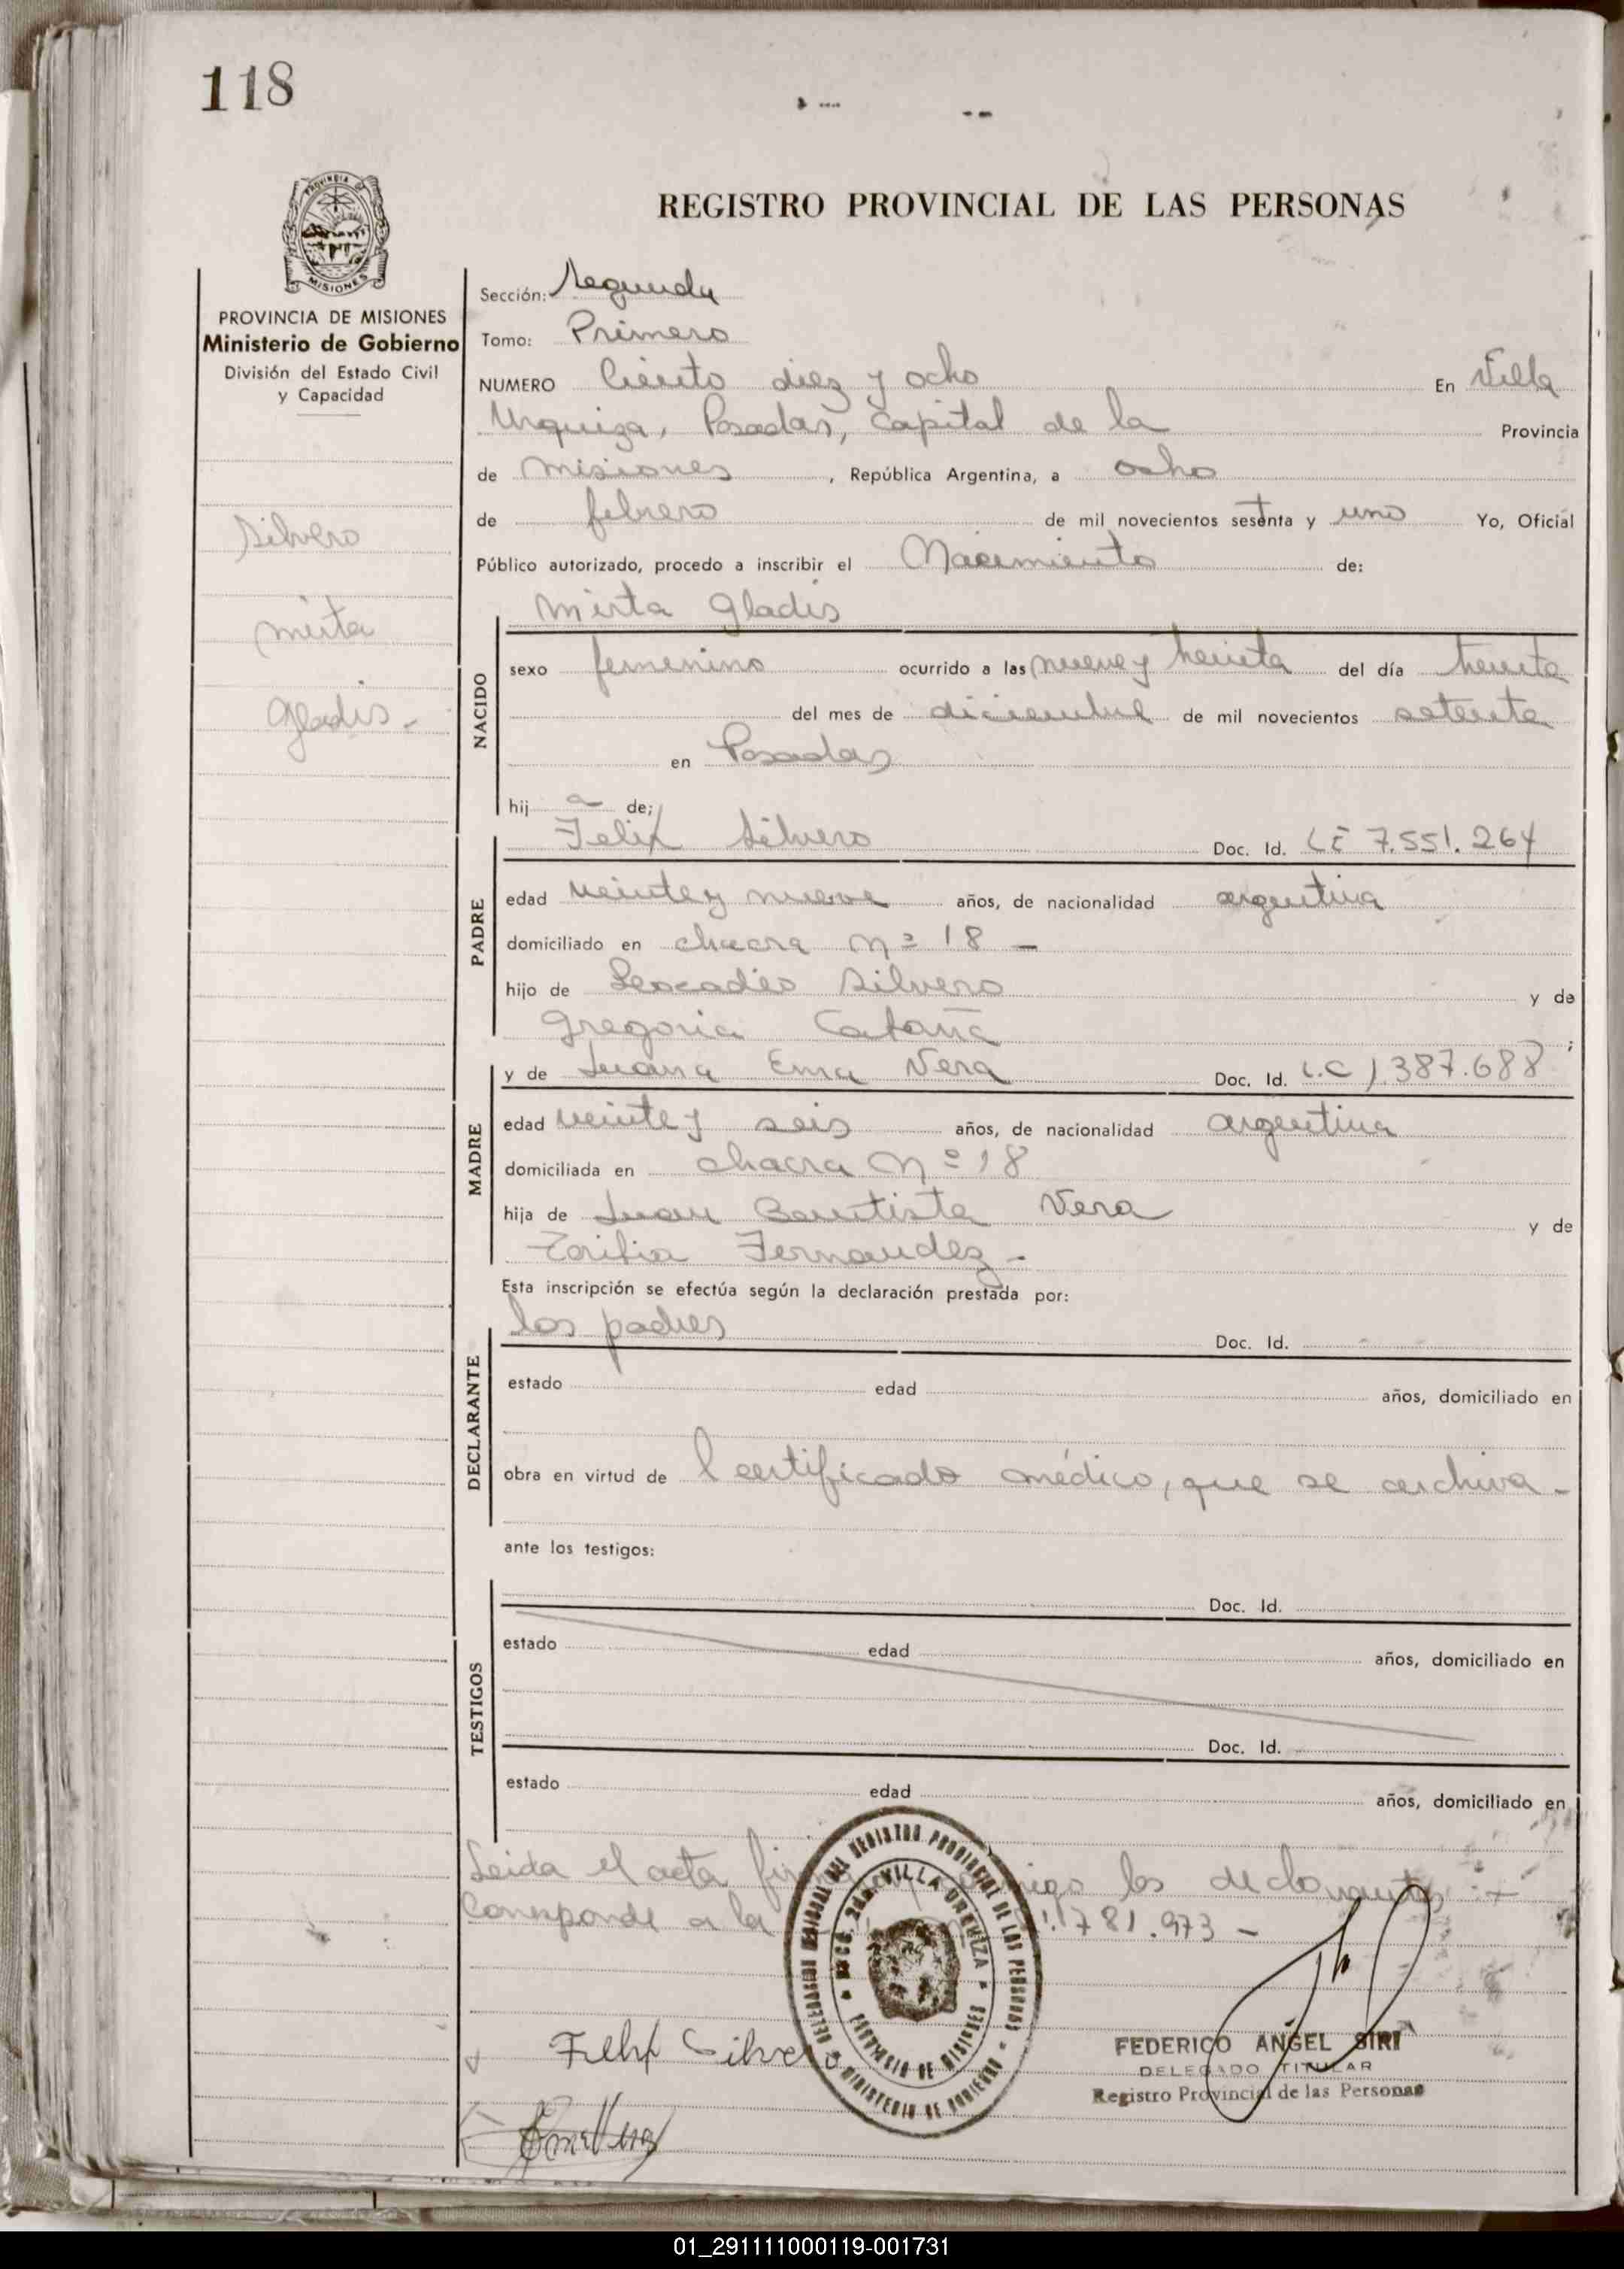 118
PROVINCIA DE
MISIONES
REGISTRO PROVINCIAL DE LAS PERSONAS
PROVINCIA DE MISIONES
Ministerio de Gobierno
División del Estado Civil
y Capacidad
Silvero
Mirta
Gladis.-
Sección: Segunda
Tomo: Primero
NUMERO Ciento diez y ocho En Villa
Urquiza, Posadas, Capital de la Provincia
de Misiones, República Argentina, a ocho
de febrero de mil novecientos setenta y uno Yo, Oficial
Público autorizado, procedo a inscribir el Nacimiento de:
Mirta Gladis
NACIDO
sexo femenino ocurrido a las nueve y treinta del día treinta
del mes de diciembre de mil novecientos setenta
en Posadas
hij a de;
Felix Silvero Doc. Id. LE 7.551.264
PADRE
edad veinte y nueve años, de nacionalidad argentina
domiciliado en chacra Nº 18 -
hijo de Leocadio Silvero y de
Gregoria ;
y de Juana Ema Vera Doc. Id. L.C 1.387.688
MADRE
edad veinte y seis años, de nacionalidad argentina
domiciliada en chacra Nº 18
hija de Juan Bautista Vera y de
Fernandez.
Esta inscripción se efectúa según la declaración prestada por:
los padres Doc. Id.
DECLARANTE
estado edad años, domiciliado en
obra en virtud de l certificado médico, que se archiva.
ante los testigos:
Doc. Id.
TESTIGOS
estado edad años, domiciliado en
Doc. Id.
estado edad años, domiciliado en
Leida el acta los declarantes.-
Corresponde a la 1.781.973 -
DELEGACION REGIONAL DEL REGISTRO PROVINCIAL DE LAS PERSONAS
MINISTERIO DE GOBIERNO
SECC. 2da. VILLA URQUIZA
PROVINCIA DE MISIONES
Felix Silvero
Ema Vera
FEDERICO ANGEL SIRI
DELEGADO TITULAR
Registro Provincial de las Personas
01_291111000119-001731